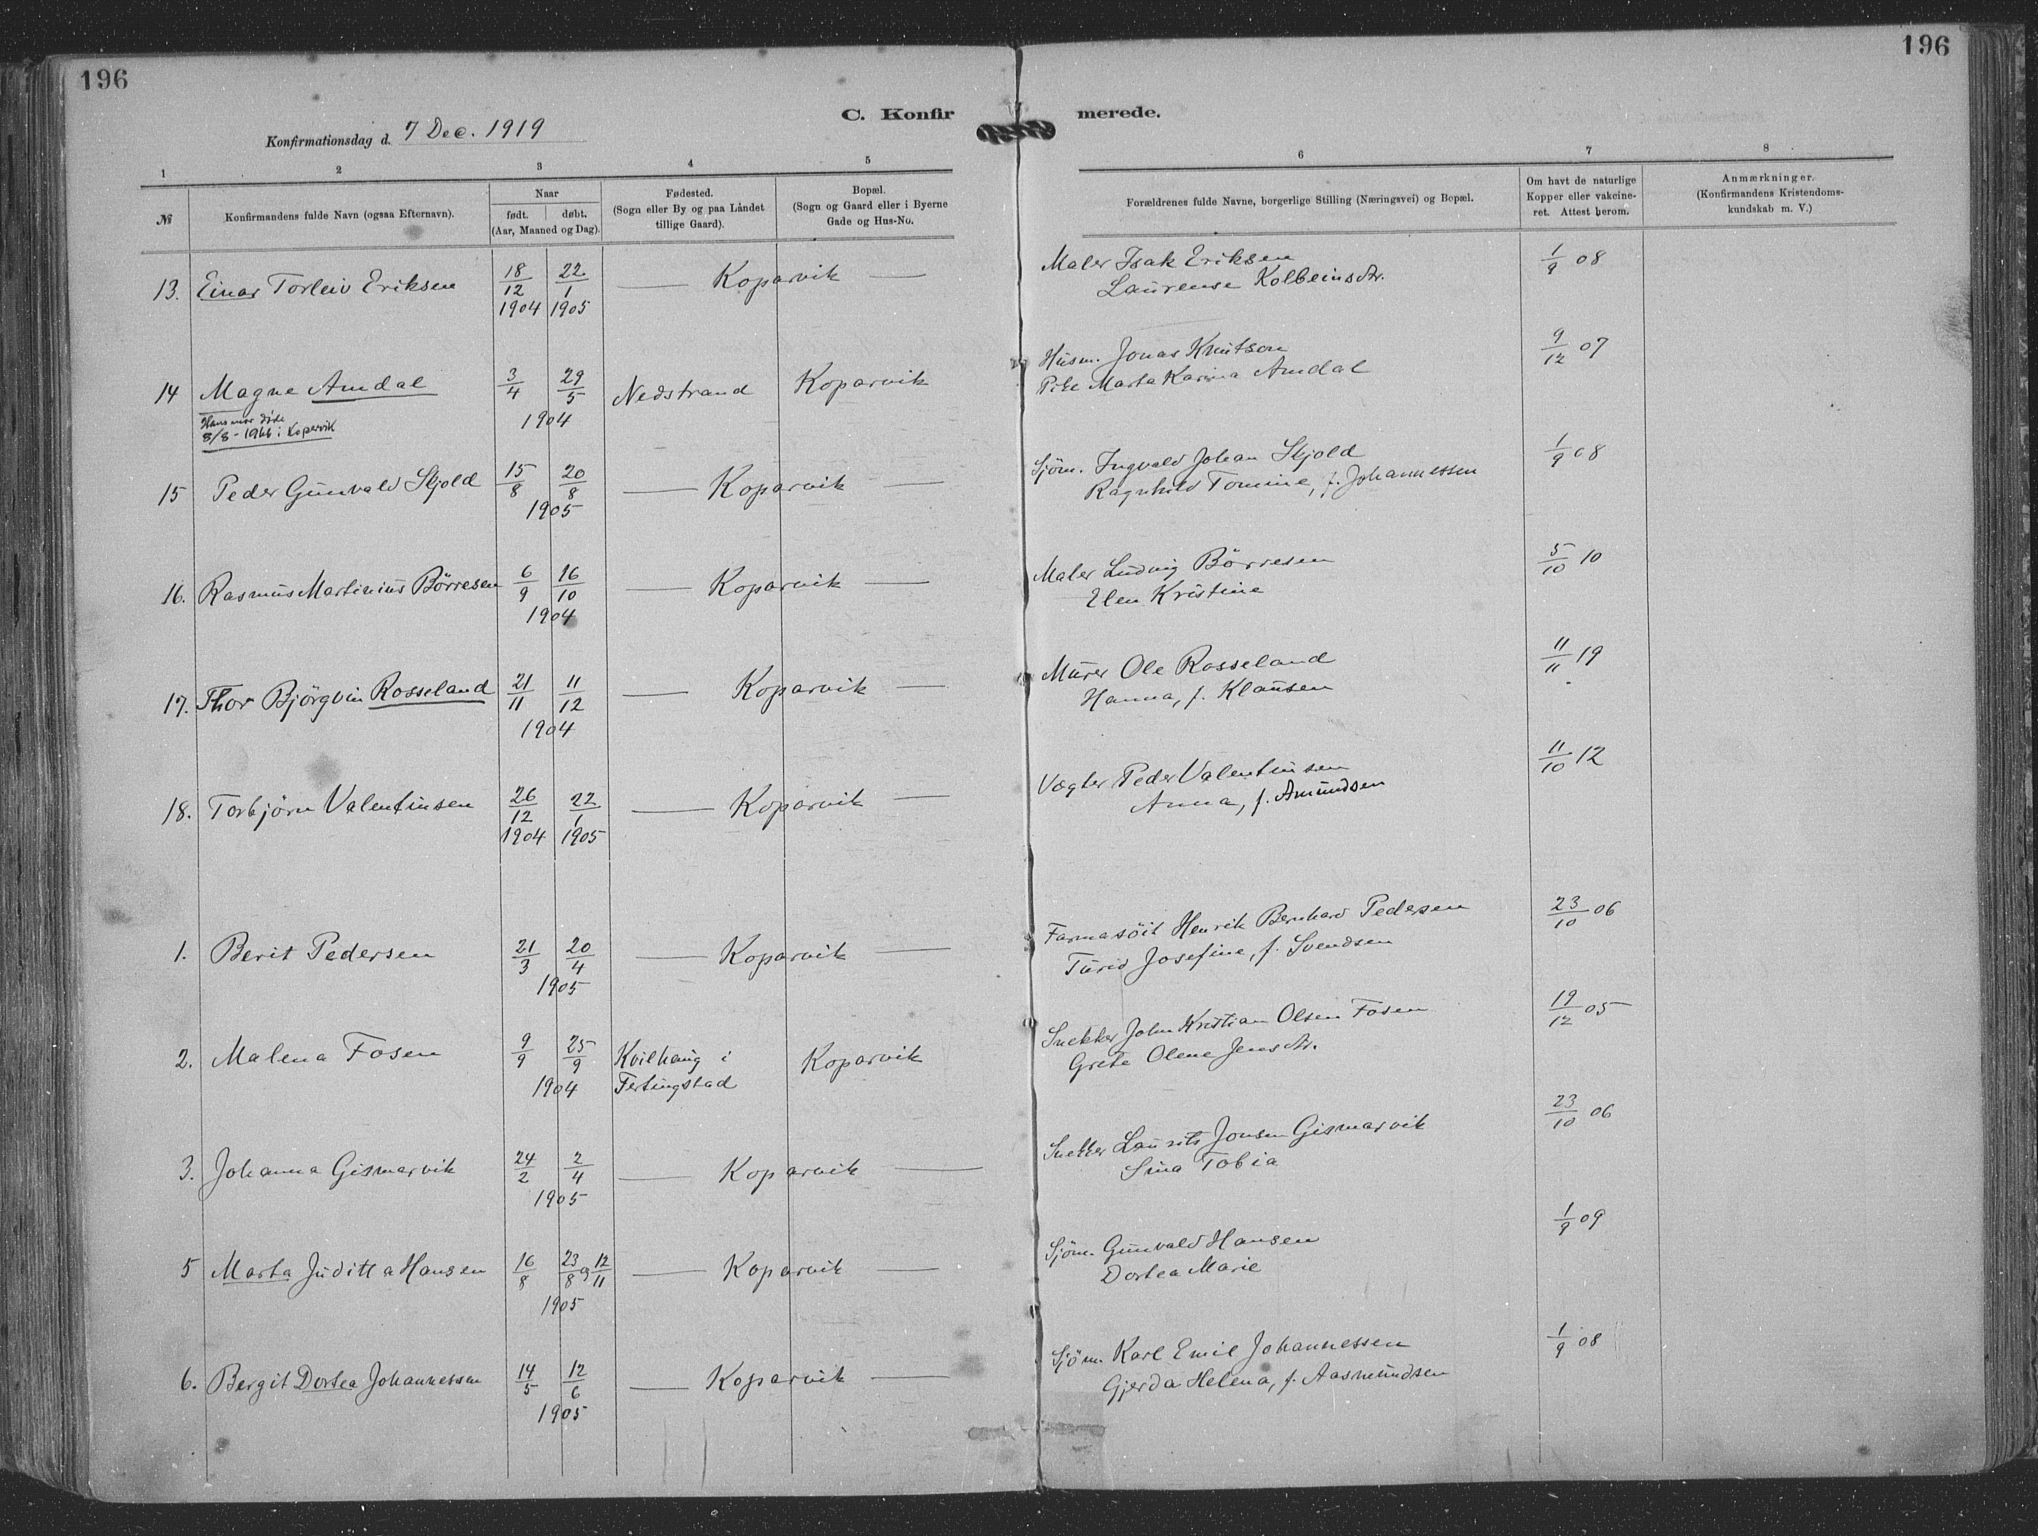 196
196
C. Konfir merede.
Konfirmationsdag d. 7 Dec. 1919
1 2 3 4 5 6 7 8
№
Konfirmandens fulde Navn (ogsaa Efternavn).
Naar
født. døbt.
(Aar, Maaned og Dag).
Fødested.
(Sogn eller By og paa Låndet
tillige Gaard).
Bopæl.
(Sogn og Gaard eller i Byerne
Gade og Hus-No.
Forældrenes fulde Navne, borgerlige Stilling (Næringsvei) og Bopæl.
Om havt de naturlige
Kopper eller vakcine-
ret. Attest herom.
Anmærkninger.
(Konfirmandens Kristendoms-
kundskab m. V.)
13. Einar Torleiv Eriksen 18/12 1904 22/1 1905 — Koparvik — Maler Isak Eriksen 1/9 08
Laurense Kolbeinsdtr.
14 Magne Amdal 3/4 29/5 1904 Nedstrand Koparvik Husm. Jonas Knutson 9/12 07
Pike Marta Karina Amdal
Hans mor døde
8/8-1966 i Kopervik
15 Peder Gunvald Skjold 15/8 20/8 1905 — Koparvik — Sjöm. Ingvald Johan Skjold 1/9 08
Ragnhild Tomine, f. Johannessen
16. Rasmus Martinius Börresen 6/9 16/10 1904 — Koparvik — Maler Ludvig Börresen 5/10 10
Elen Kristine
17. Thor Björgvin Rosseland 21/11 11/12 1904 — Koparvik — Murer Ole Rosseland 11/11 19
Hanna, f. Klausen
18. Torbjörn Valentinsen 26/12 1904 22/1 1905 — Koparvik — Vægter Peder Valentinsen 11/10 12
Anna, f. Amundsen
1. Berit Pedersen 21/3 20/4 1905 — Koparvik — Farmasöit Henrik Bernhard Pedersen 23/10 06
Turid Josefine, f. Svendsen
2. Malena Fosen 9/9 25/9 1904 Kvilhaug i Koparvik Snekker John Kristian Olsen Fosen 19/12 05
Ferlingstad Grete Olene Jensdtr.
3. Johanna Gismarvik 24/2 2/4 1905 — Koparvik — Snekker Laurits Jonsen Gismarvik 23/10 06
Sina Tobia
5 Marta Juditta Hansen 16/8 23/8 og 12/11 1905 — Koparvik — Sjöm. Gunvald Hansen 1/9 09
Dortea Marie
6. Bergit Dortea Johannessen 14/5 12/6 1905 — Koparvik — Sjöm. Karl Emil Johannessen 1/9 08
Gjerda Helena, f. Aasmundsen